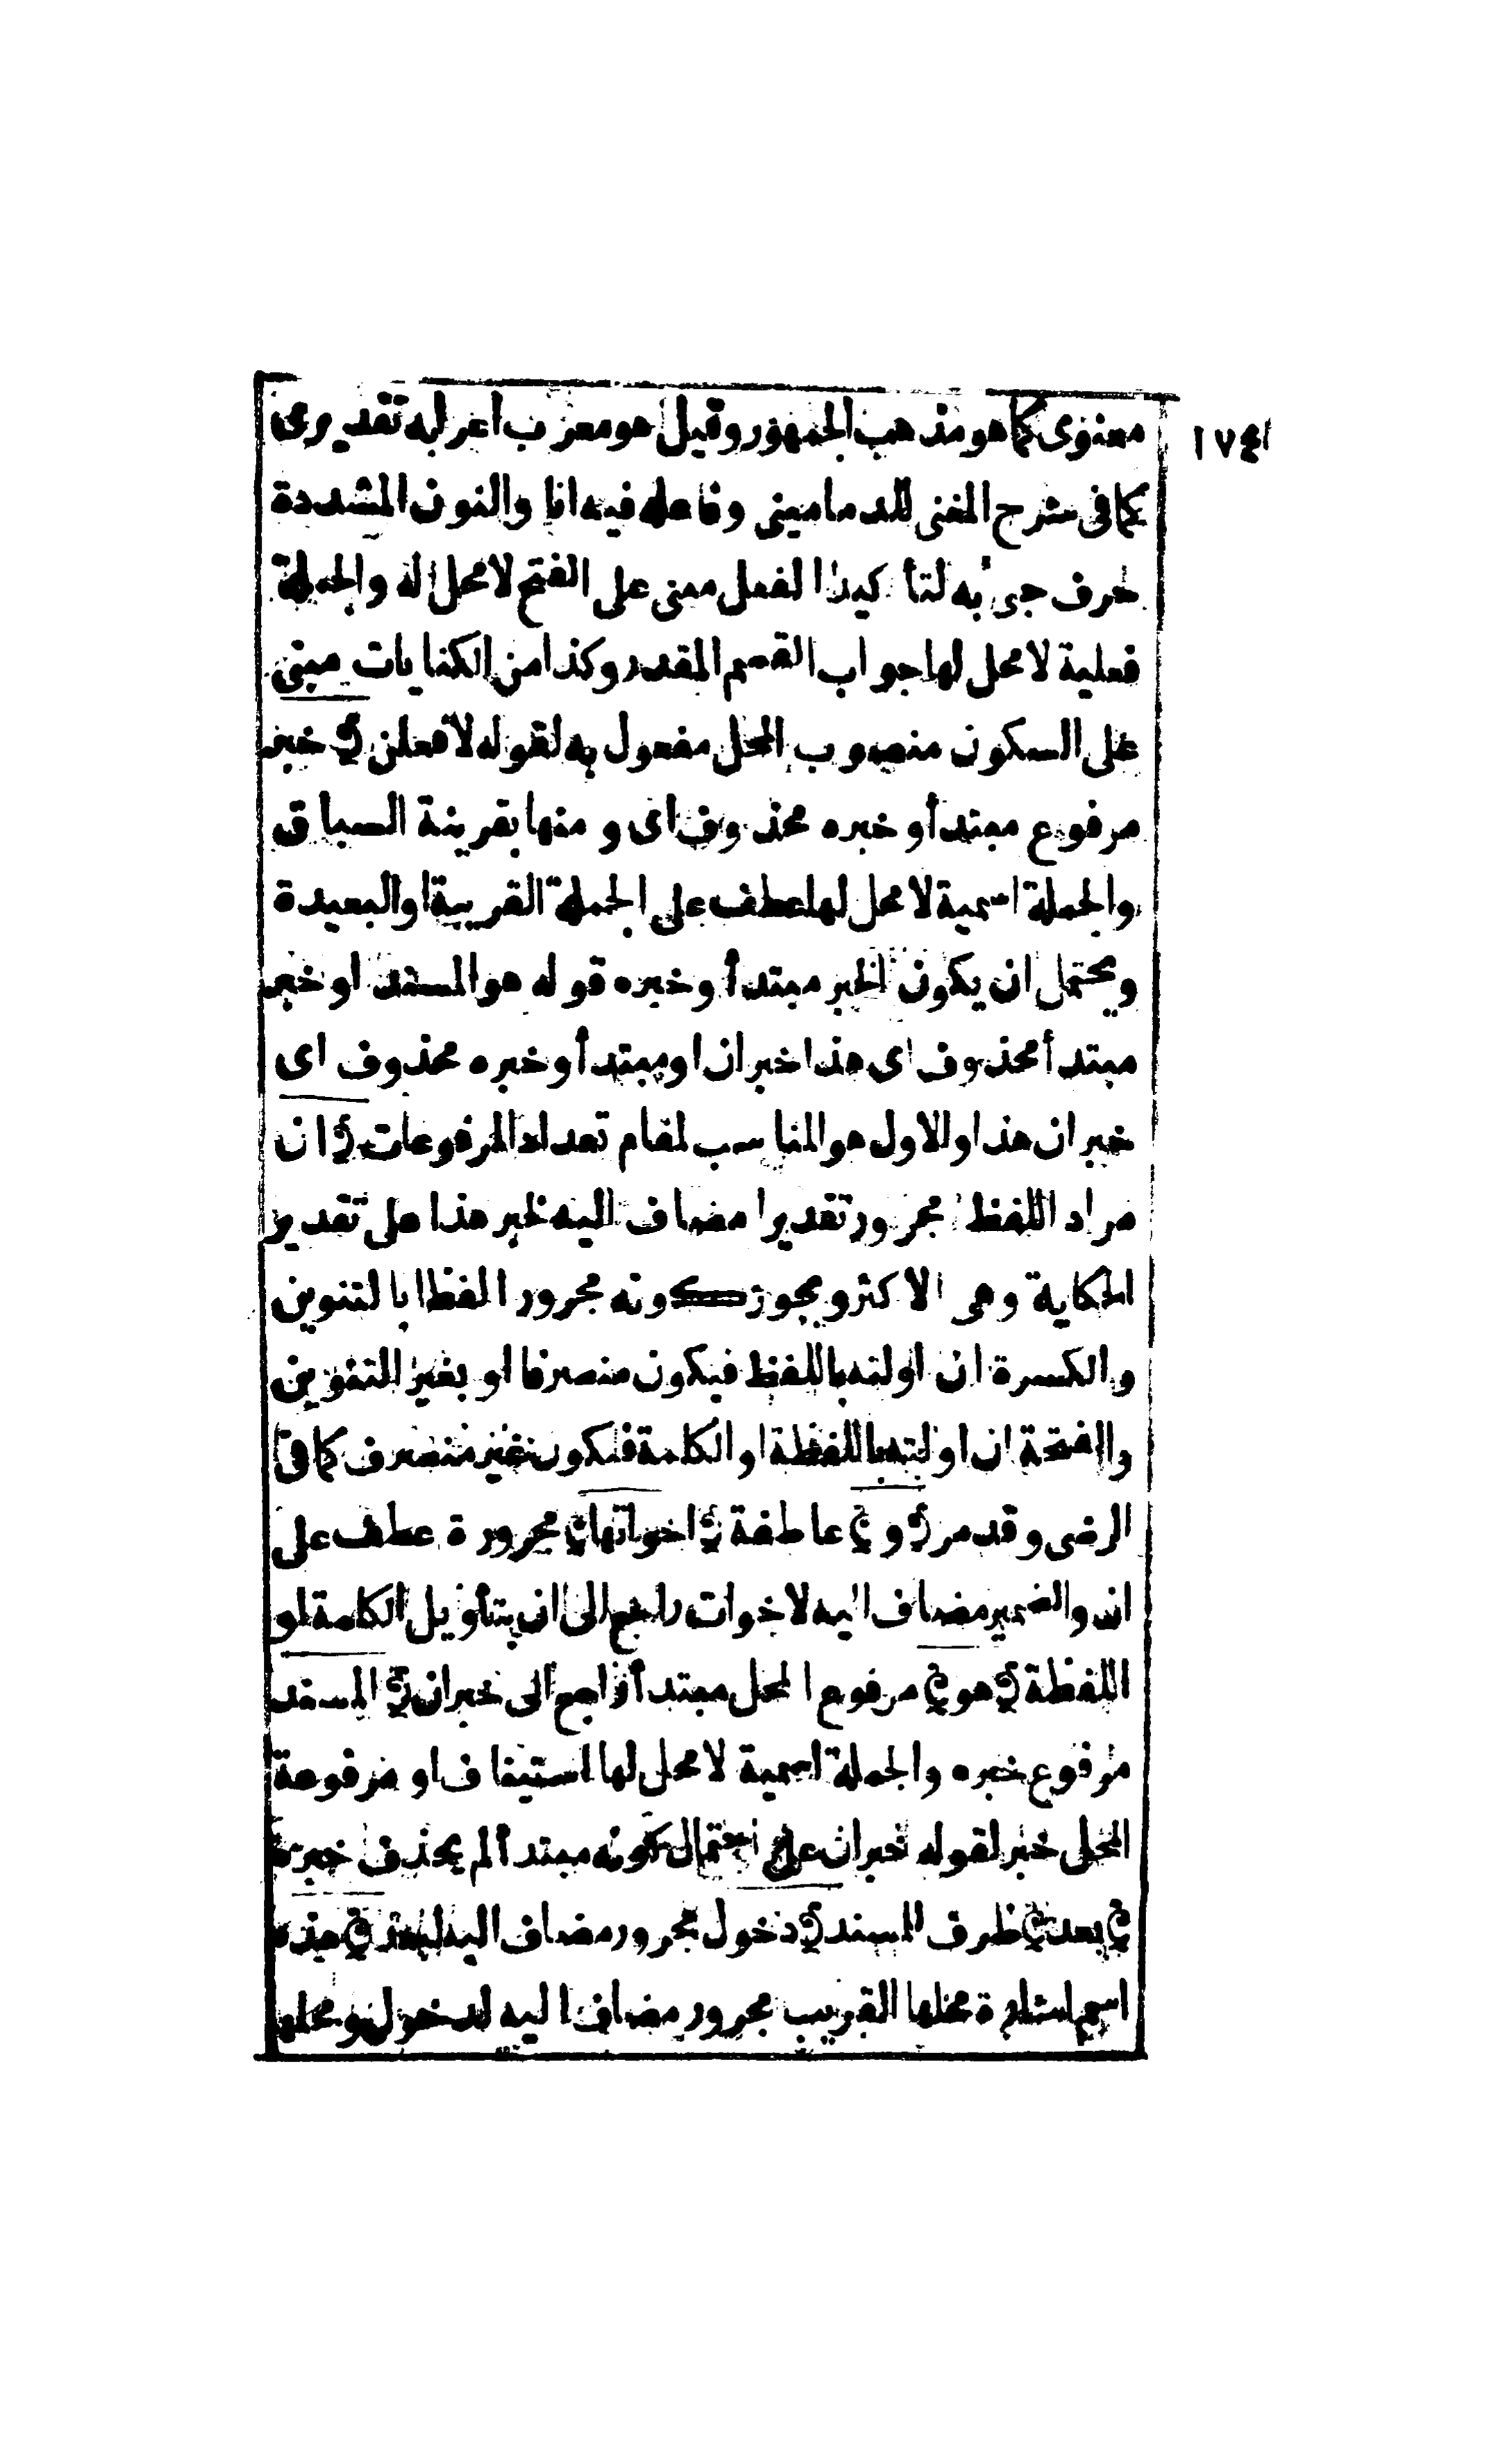 ١٧٤
معنوى كما هو مذهب الجمهور وقيل هو معرب اعرابه تقديرى
كما فى شرح المغنى للدمامينى وفاعله فيه انا والنون المشددة
حرف جىء به لتأكيد الفعل مبنى على الفتح لا محل له والجملة
فعلية لا محل لها جواب القسم المقدر وكذا من الكنايات مبنى
على السكون منصوب المحل مفعول به لقوله لافعلن ﴿ خبر
مرفوع مبتدأ وخبره محذوف اى و منها بقرينة السباق
والجملة اسمية لا محل لها عطف على الجملة القريبة او البعيدة
ويحتمل ان يكون الخبر مبتدأ وخبره قوله هو المسند او خبر
مبتدأ محذوف اى هذا خبر ان او مبتدأ وخبره محذوف اى
خبر ان هذا والاول هو المناسب لمقام تعداد المرفوعات ﴿ ان
مراد اللفظ مجرور تقديرا مضاف اليه لخبر هذا على تقدير
الحكاية وهى الاكثر ويجوز كونه مجرور الفظا بالتنوين
والكسرة ان اولته باللفظ فيكون منصرفا او بغير التنوين
والفتحة ان اولته باللفظة او الكلمة فيكون غير منصرف كما فى
الرضى وقد مر ﴿ و ﴾ عاطفة ﴿ اخواتها ﴾ مجرورة عطف على
ان والضمير مضاف اليه لاخوات راجع الى ان بتأويل الكلمة او
اللفظة ﴿ هو ﴾ مرفوع المحل مبتدأ راجع الى خبر ان ﴿ المسند
مرفوع خبره والجملة اسمية لا محل لها استيناف او مرفوعة
المحل خبر لقوله خبر ان على احتمال كونه مبتدأ لم يحذف خبره
﴾ بعد ﴾ ظرف المسند ﴿ دخول مجرور مضاف اليه لبعد ﴾ هذه
اسم اشارة محلها القريب مجرور مضاف اليه لدخول ومحلها